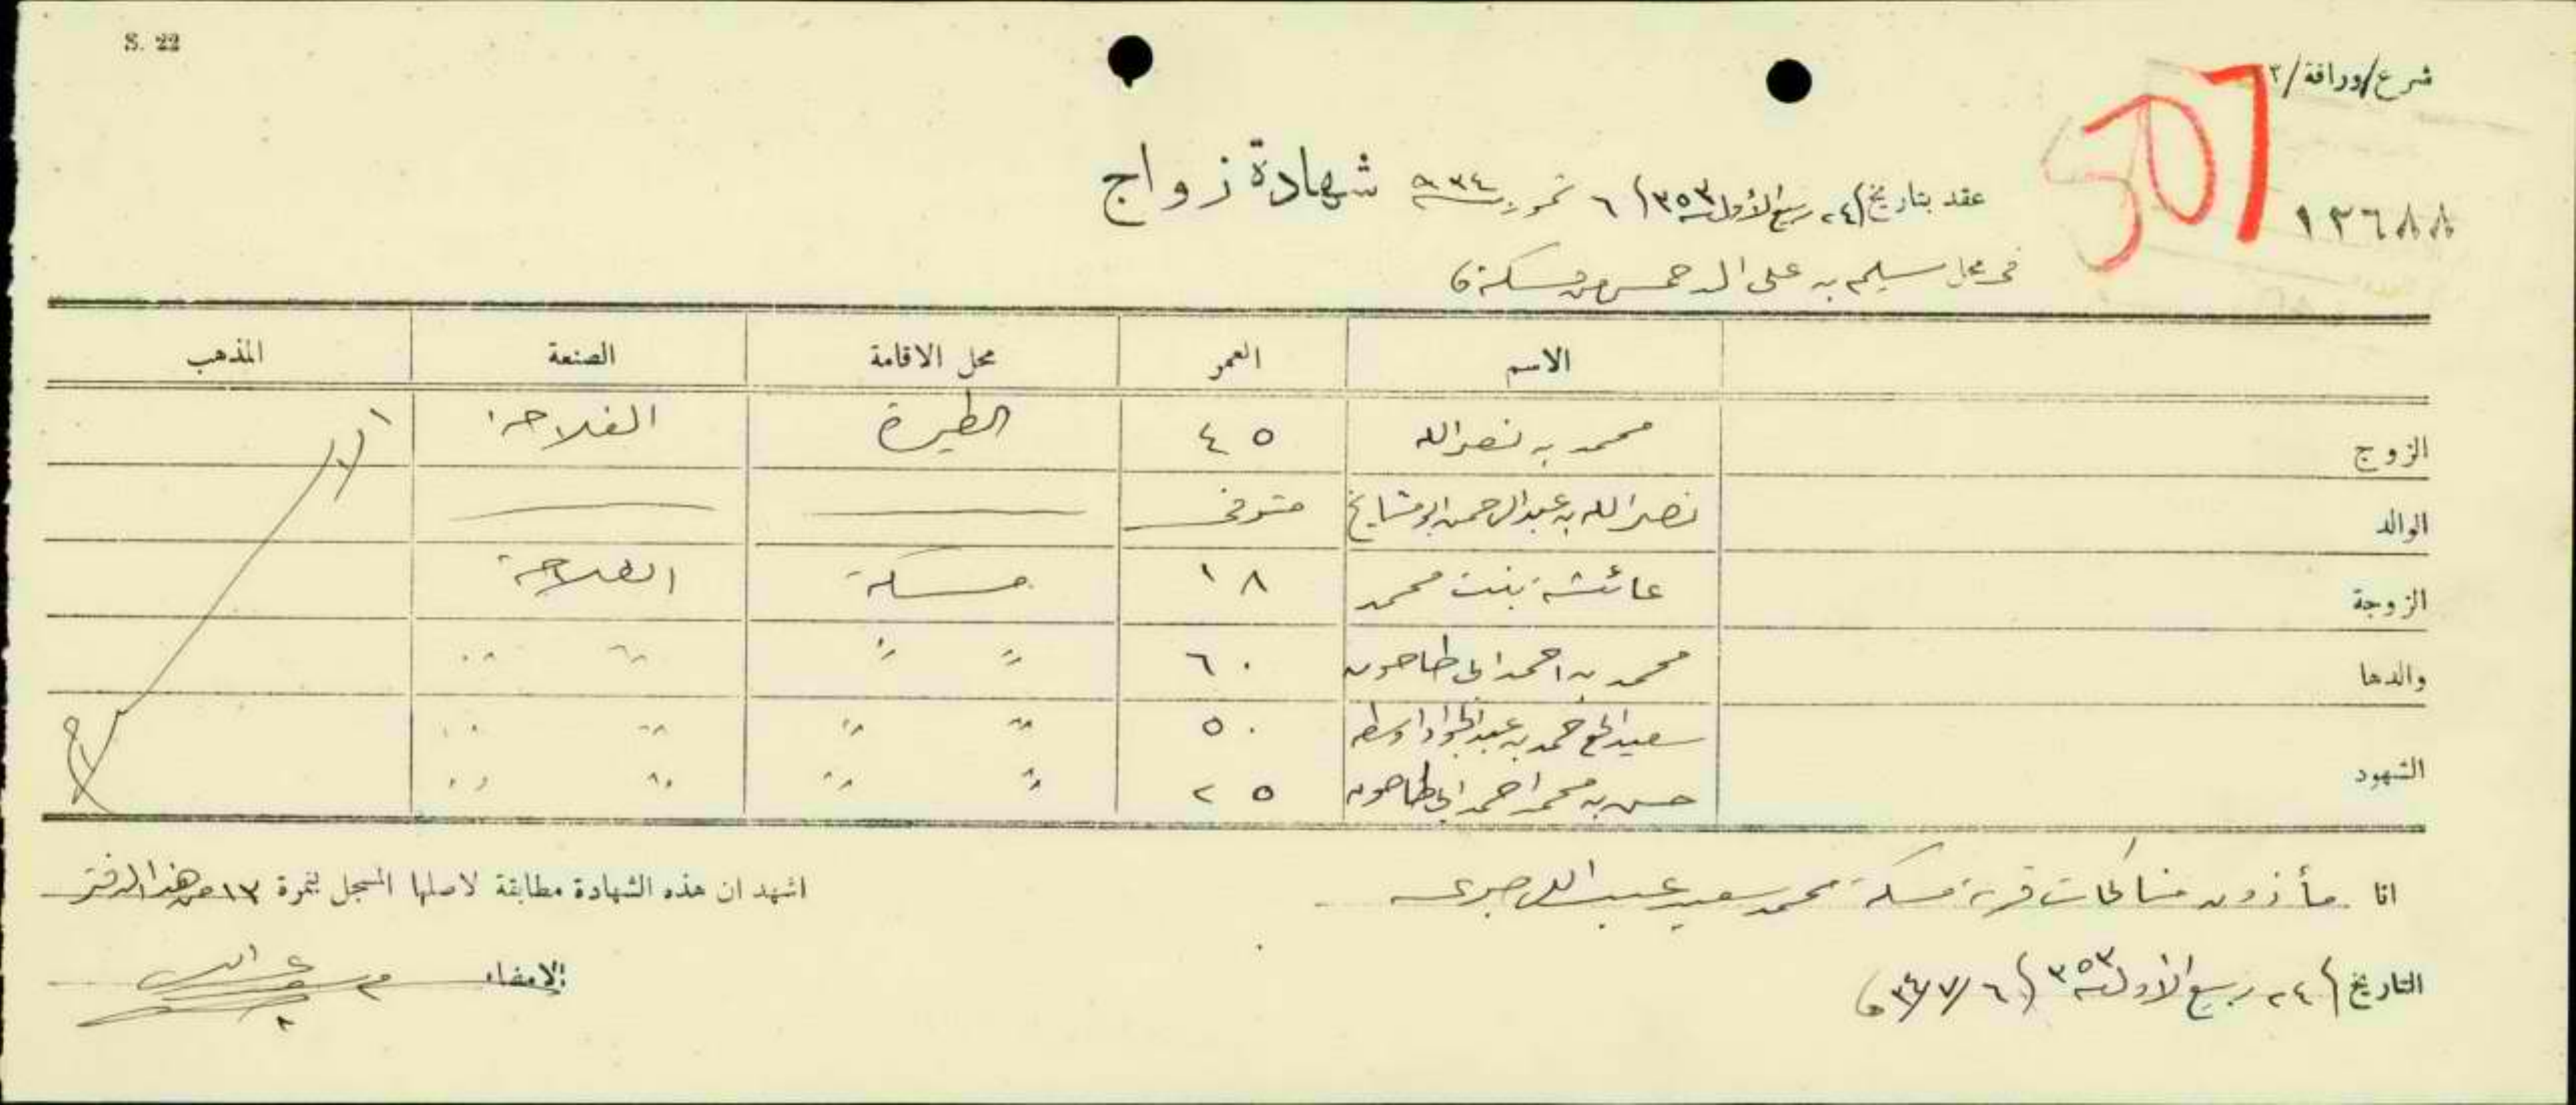 S. 22
شرع/وراقة/٢
507
١٣٦٨٨
شهادة زواج
عقد بتاريخ (٢٤ ربيع الأول سنة ٣٥٣) ٦ تموز سنة ٩٣٤
في محل سليم بن علي من مسكة
الاسم العمر محل الاقامة الصنعة المذهب
الزوج محمد بن نصرالله ٤٥ الطيرة الفلاحة
الوالد نصرالله بن عبدالرحمن ابو مشايخ متوفى
الزوجة عائشة بنت محمد ١٨ مسكة الفلاحة
والدها محمد بن احمد ابي طاحون ٦٠ " " " "
الشهود سعيد الحاج حمد بن عبدالجواد ٥٠ " " " "
حسن بن محمد احمد ابي طاحون ٢٥ " " " "
انا مأذون مناكحات قرية مسكة محمد سعيد عبدالله
اشهد ان هذه الشهادة مطابقة لاصلها المسجل بنمرة ١٣ من هذا الدفتر
التاريخ (٢٤ ربيع الأول سنة ٣٥٣) ٣٤/٧/٦
الامضاء